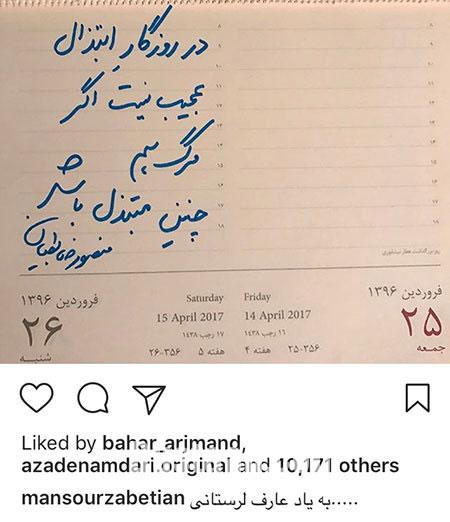 در روزگارِ ابتذال
عجیب نیست اگر
مرگ هم
چنین مبتذل باشد
منصور ضابطیان
روز بزرگداشت عطار نیشابوری
فروردین ۱۳۹۶
۲۵
جمعه
Friday
14 April 2017
۱۶ رجب ۱۴۳۸
هفته ۴
۲۵-۳۵۶
Saturday
15 April 2017
۱۷ رجب ۱۴۳۸
هفته ۵
۲۶-۳۵۶
فروردین ۱۳۹۶
۲۶
شنبه
Liked by bahar_arjmand,
azadenamdari.original and 10,171 others
mansourzabetian به یاد عارف لرستانی.....